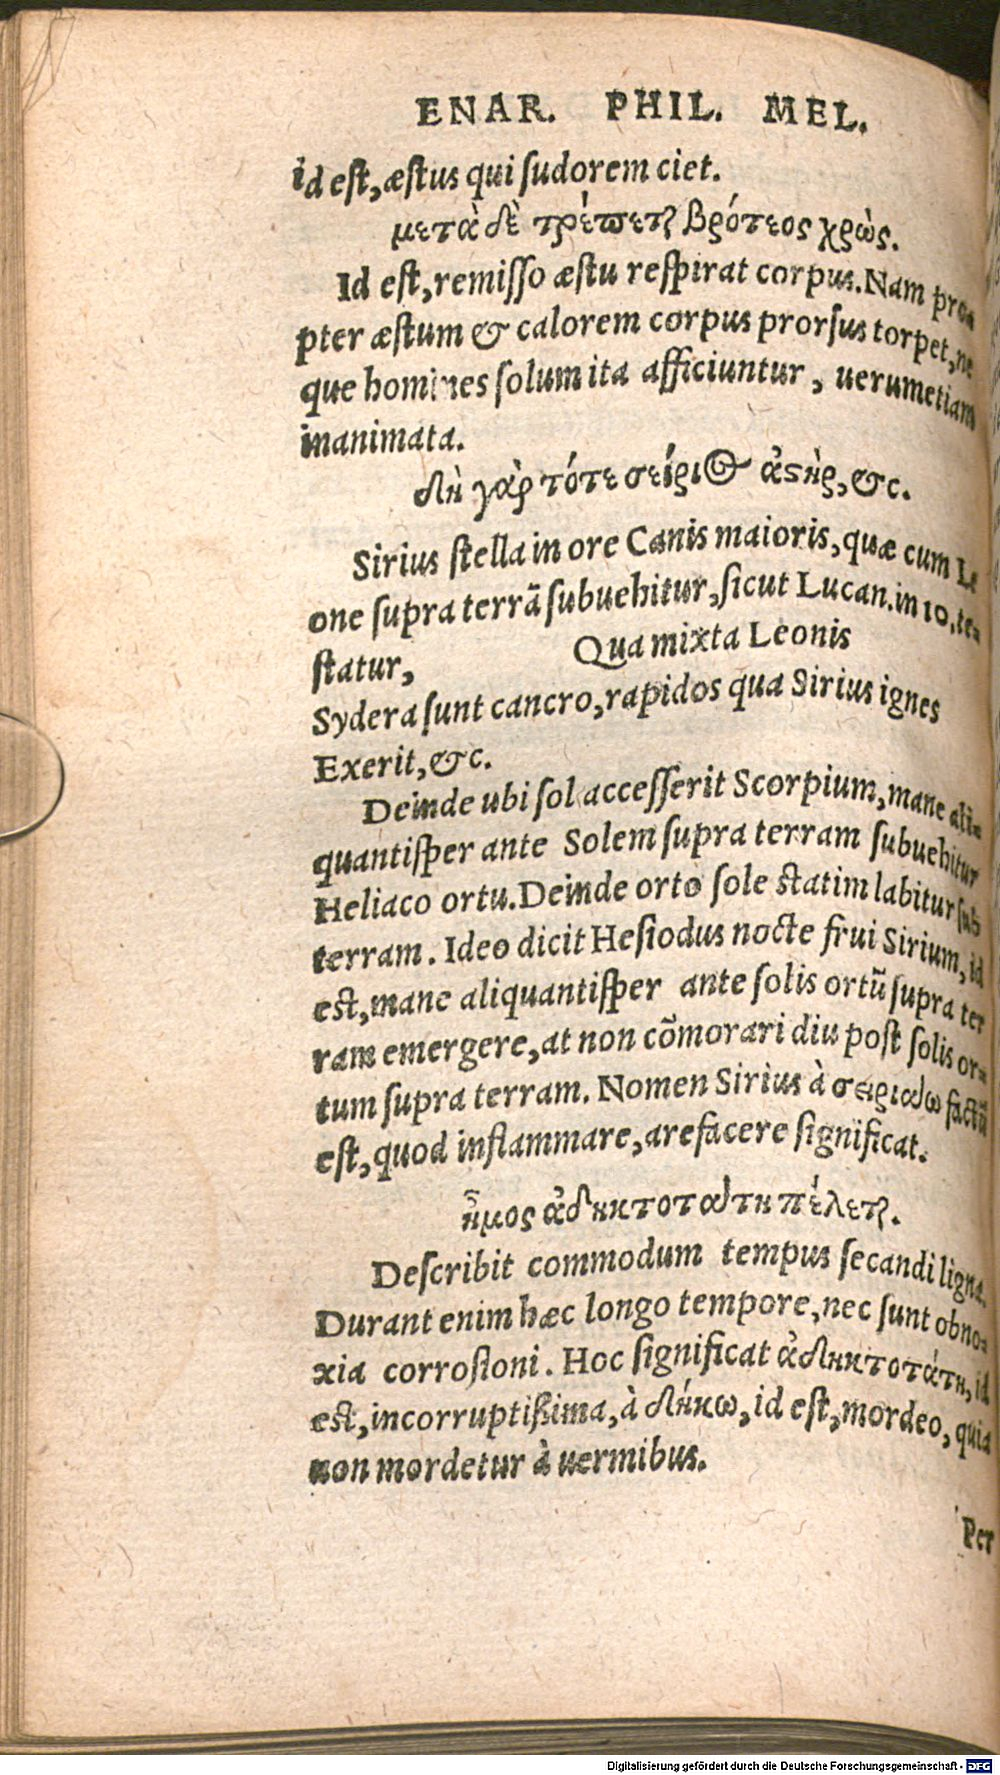 ENAR. PHIL. MEL.
id est, æstus qui sudorem ciet.
μετὰ δὲ τρέπεται βρότεος χρὼς.
Id est, remisso æstu respirat corpus. Nam pro-
pter æstum & calorem corpus prorsus torpet, ne
que homines solum ita afficiuntur, uerumetiam
inanimata.
δὴ γὰρ τότε σείριος ἀστὴρ, &c.
Sirius stella in ore Canis maioris, quæ cum Le
one supra terrã subuehitur, sicut Lucan. in 10. te-
statur, Qua mixta Leonis
Sydera sunt cancro, rapidos qua Sirius ignes
Exerit, &c.
Deinde ubi sol accesserit Scorpium, mane ali-
quantisper ante Solem supra terram subuehitur
Heliaco ortu. Deinde orto sole statim labitur sub
terram. Ideo dicit Hesiodus nocte frui Sirium, id
est, mane aliquantisper ante solis ortũ supra ter
ram emergere, at non cõmorari diu post solis or-
tum supra terram. Nomen Sirius à σειριαω factũ
est, quod inflammare, arefacere significat.
ἦμος ἀδηκτοτάτη πέλεται.
Describit commodum tempus secandi ligna.
Durant enim hæc longo tempore, nec sunt obno-
xia corrosioni. Hoc significat ἀδηκτοτάτη, id
est, incorruptißima, à δήκω, id est, mordeo, quia
non mordetur à uermibus.
Per
Digitalisierung gefördert durch die Deutsche Forschungsgemeinschaft - DFG